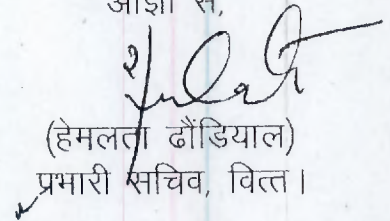 आज्ञा से,
(हेमलता ढौंडियाल)
प्रभारी सचिव, वित्त।